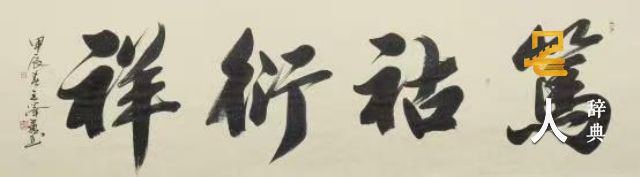 篤祜衍祥
甲辰春
名人
辞典